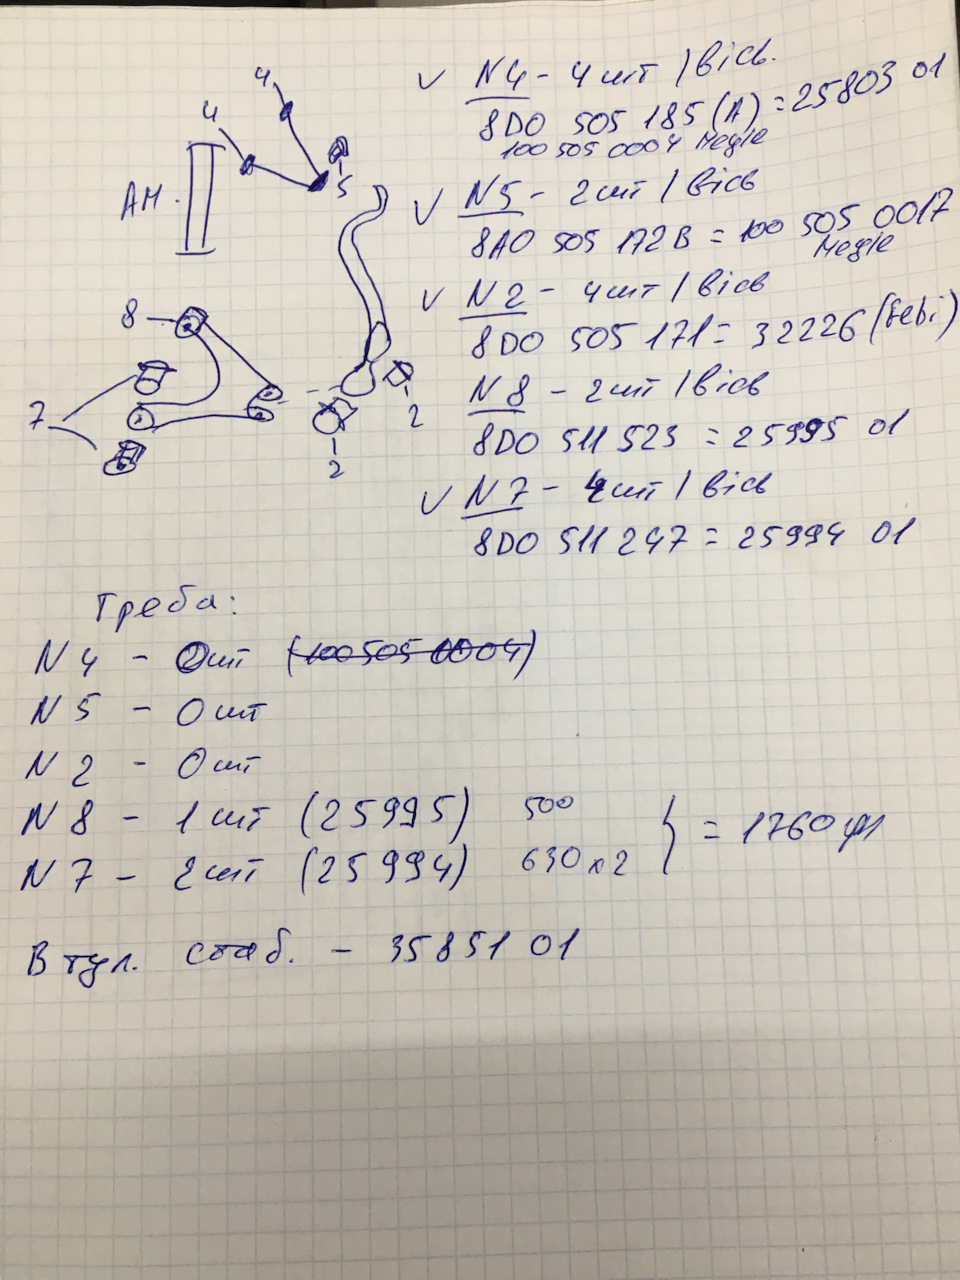 4
4
5
АМ.
8
7
2
2
N4 - 4 шт / вісь.
8D0 505 185 (A) = 25803 01
100 505 0004 Meyle
N5 - 2 шт / вісь
8A0 505 172 B = 100 505 0017
Meyle
N2 - 4 шт / вісь
8D0 505 171 = 32226 (Febi)
N8 - 2 шт / вісь
8D0 511 523 = 25995 01
N7 - 4 шт / вісь
8D0 511 247 = 25994 01
Треба:
N4 - 0 шт (100 505 0004)
N5 - 0 шт
N2 - 0 шт
N8 - 1 шт (25995) 500
N7 - 2 шт (25994) 630 х 2
} = 1760
Втул. стаб. - 35851 01